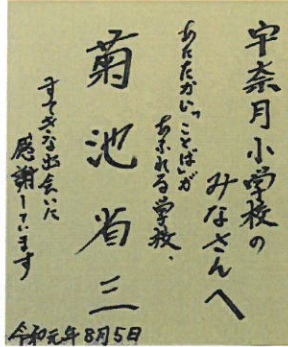 宇奈月小学校の
みなさんへ
あたたかい「ことば」が
あふれる学校、
菊池省三
すてきな出会いに
感謝しています
令和元年8月5日